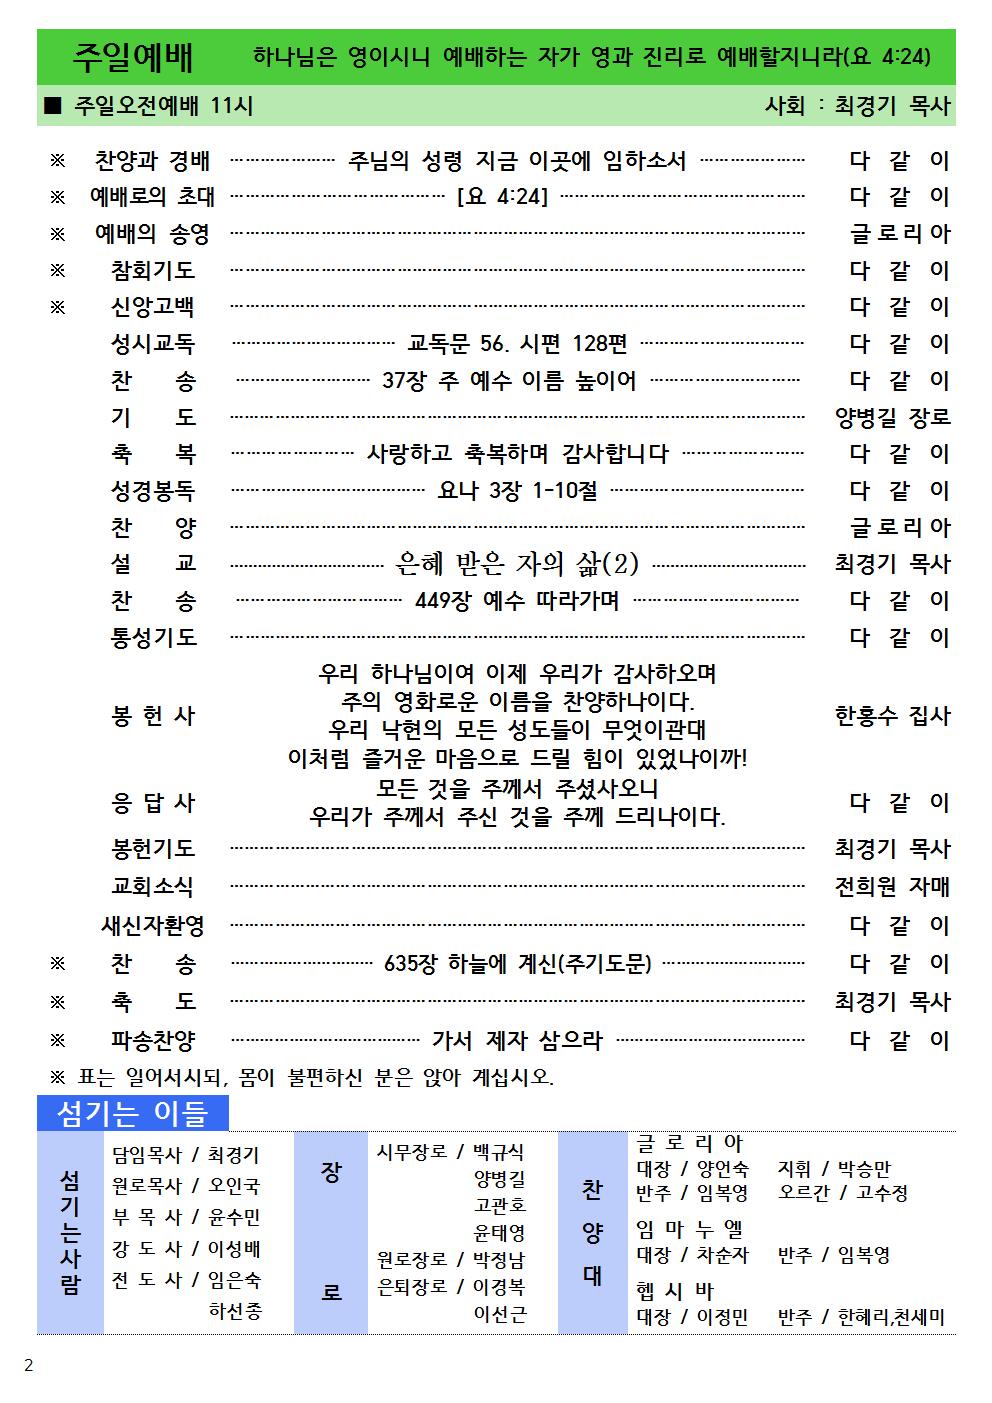 주일예배 하나님은 영이시니 예배하는 자가 영과 진리로 예배할지니라(요 4:24)
■ 주일오전예배 11시 사회 : 최경기 목사
※ 찬양과 경배 ·················· 주님의 성령 지금 이곳에 임하소서 ·················· 다 같 이
※ 예배로의 초대 ·················· [요 4:24] ·················· 다 같 이
※ 예배의 송영 ·················· 글로리아
※ 참회기도 ·················· 다 같 이
※ 신앙고백 ·················· 다 같 이
성시교독 ·················· 교독문 56. 시편 128편 ·················· 다 같 이
찬 송 ·················· 37장 주 예수 이름 높이어 ·················· 다 같 이
기 도 ·················· 양병길 장로
축 복 ·················· 사랑하고 축복하며 감사합니다 ·················· 다 같 이
성경봉독 ·················· 요나 3장 1-10절 ·················· 다 같 이
찬 양 ·················· 글로리아
설 교 ·················· 은혜 받은 자의 삶(2) ·················· 최경기 목사
찬 송 ·················· 449장 예수 따라가며 ·················· 다 같 이
통성기도 ·················· 다 같 이
우리 하나님이여 이제 우리가 감사하오며
주의 영화로운 이름을 찬양하나이다.
봉 헌 사 한홍수 집사
우리 낙현의 모든 성도들이 무엇이관대
이처럼 즐거운 마음으로 드릴 힘이 있었나이까!
모든 것을 주께서 주셨사오니
응 답 사 다 같 이
우리가 주께서 주신 것을 주께 드리나이다.
봉헌기도 ·················· 최경기 목사
교회소식 ·················· 전희원 자매
새신자환영 ·················· 다 같 이
※ 찬 송 ·················· 635장 하늘에 계신(주기도문) ·················· 다 같 이
※ 축 도 ·················· 최경기 목사
※ 파송찬양 ·················· 가서 제자 삼으라 ·················· 다 같 이
※ 표는 일어서시되, 몸이 불편하신 분은 앉아 계십시오.
섬기는 이들
섬기는사람
담임목사 / 최경기
원로목사 / 오인국
부 목 사 / 윤수민
강 도 사 / 이성배
전 도 사 / 임은숙
하선종
장로
시무장로 / 백규식
양병길
고관호
윤태영
원로장로 / 박정남
은퇴장로 / 이경복
이선근
찬양대
글 로 리 아
대장 / 양언숙 지휘 / 박승만
반주 / 임복영 오르간 / 고수정
임 마 누 엘
대장 / 차순자 반주 / 임복영
헵 시 바
대장 / 이정민 반주 / 한혜리,천세미
2